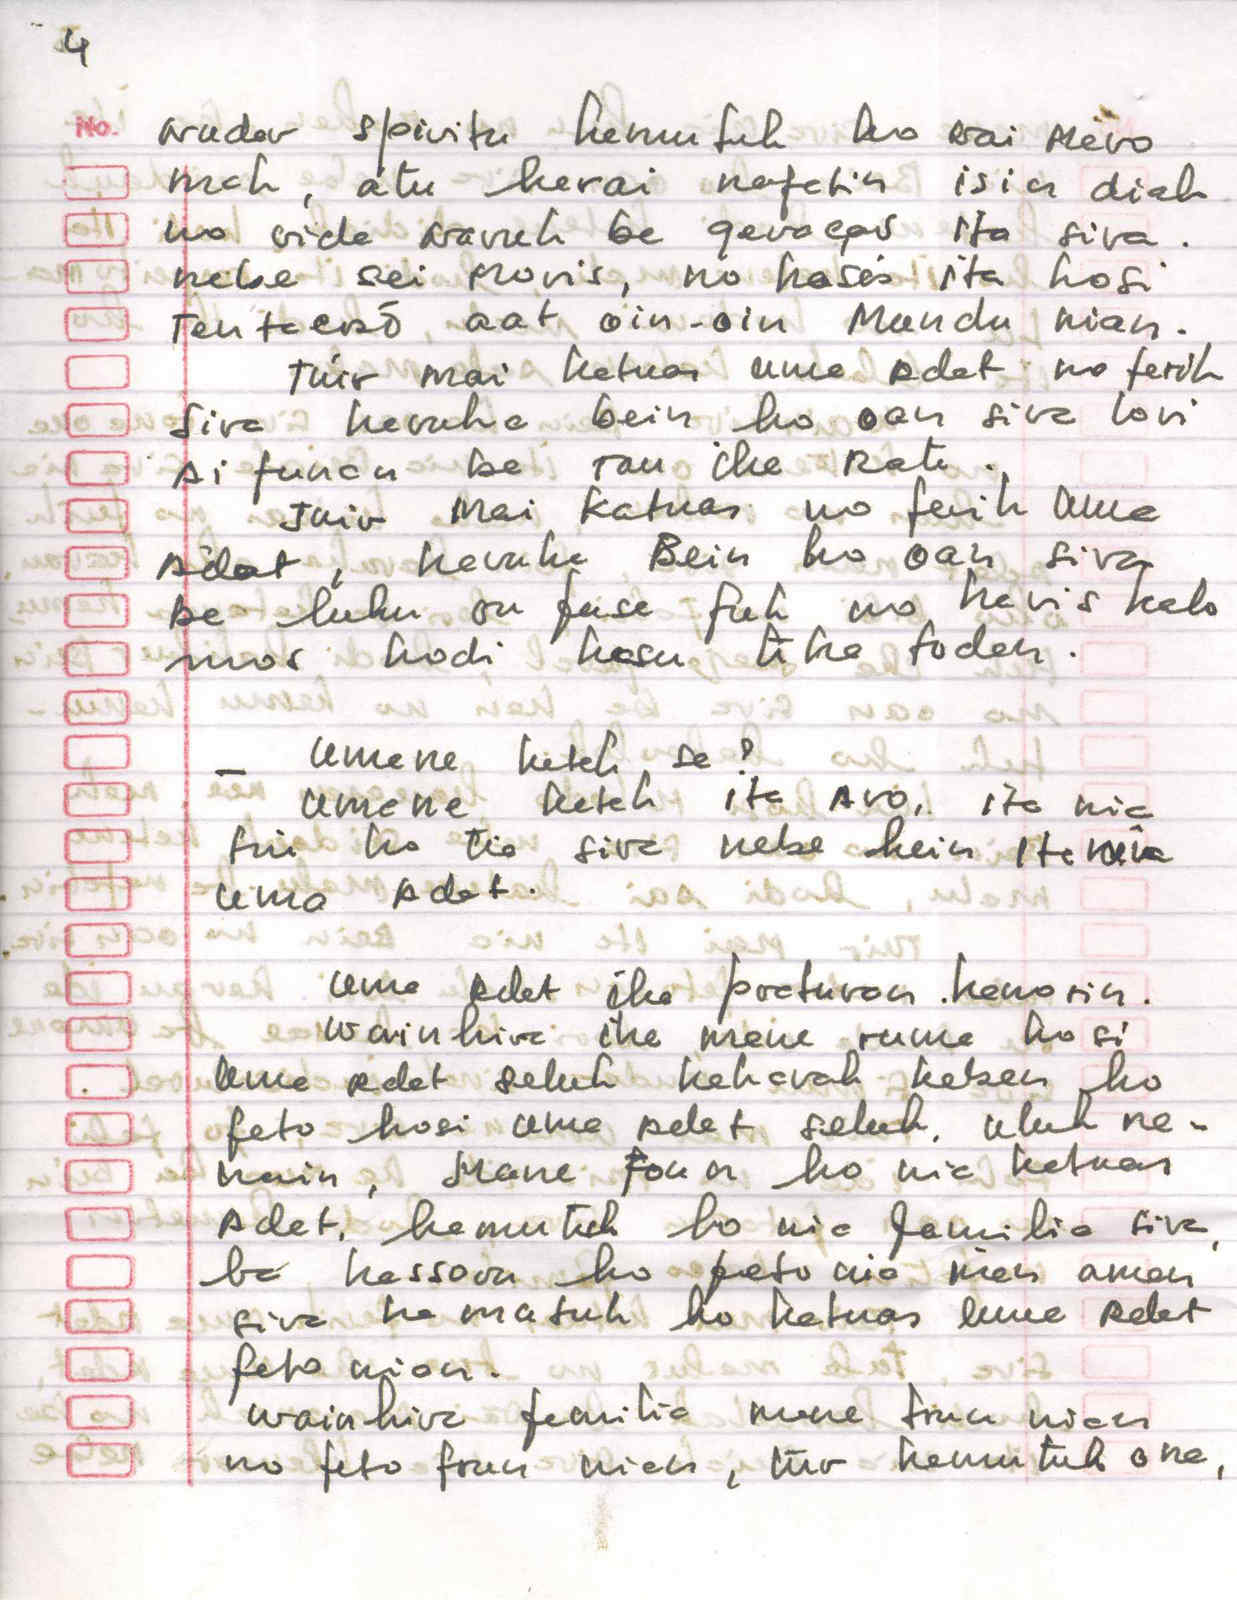 4
No.
arudor spiritu hamutuk ho rai Mero
mak, atu harai nafatin isin diak
no vida naruk ba geraçaõ ita sira.
nebe sei moris, no hases ita hosi
Tentaçaõ aat oin-oin Mundu nian.
Tuir mai katuas uma Adat no ferik
sira haruha bein ho oan sira lori
Ai funan ba rau iha Rate.
Tuir Mai katuas no ferik Uma
Adat, haruha Bein ho oan sira
ba luhu ou fase fuk no haris halo
mos hodi hasu tiha todan.
_ Umane hatak sa?
Umane hatak ita Avo, ita nia
tui ho tio sira nebe hein Ita nia
uma Adat.
Uma Adat iha preturan hanosin.
Wainhira iha mane ruma hosi
Uma Adat seluk hakarak kaben ho
feto hosi uma Adat seluk, uluk na-
nain, Mane Foun ho nia katuas
Adat, hamutuk ho nia familia sira,
ba hassoru ho feto nia inan aman
sira hamatuk ho katuas uma Adat
feto nian.
Wainhira familia mane foun nian
no feto foun nian, tur hamutuk ona,